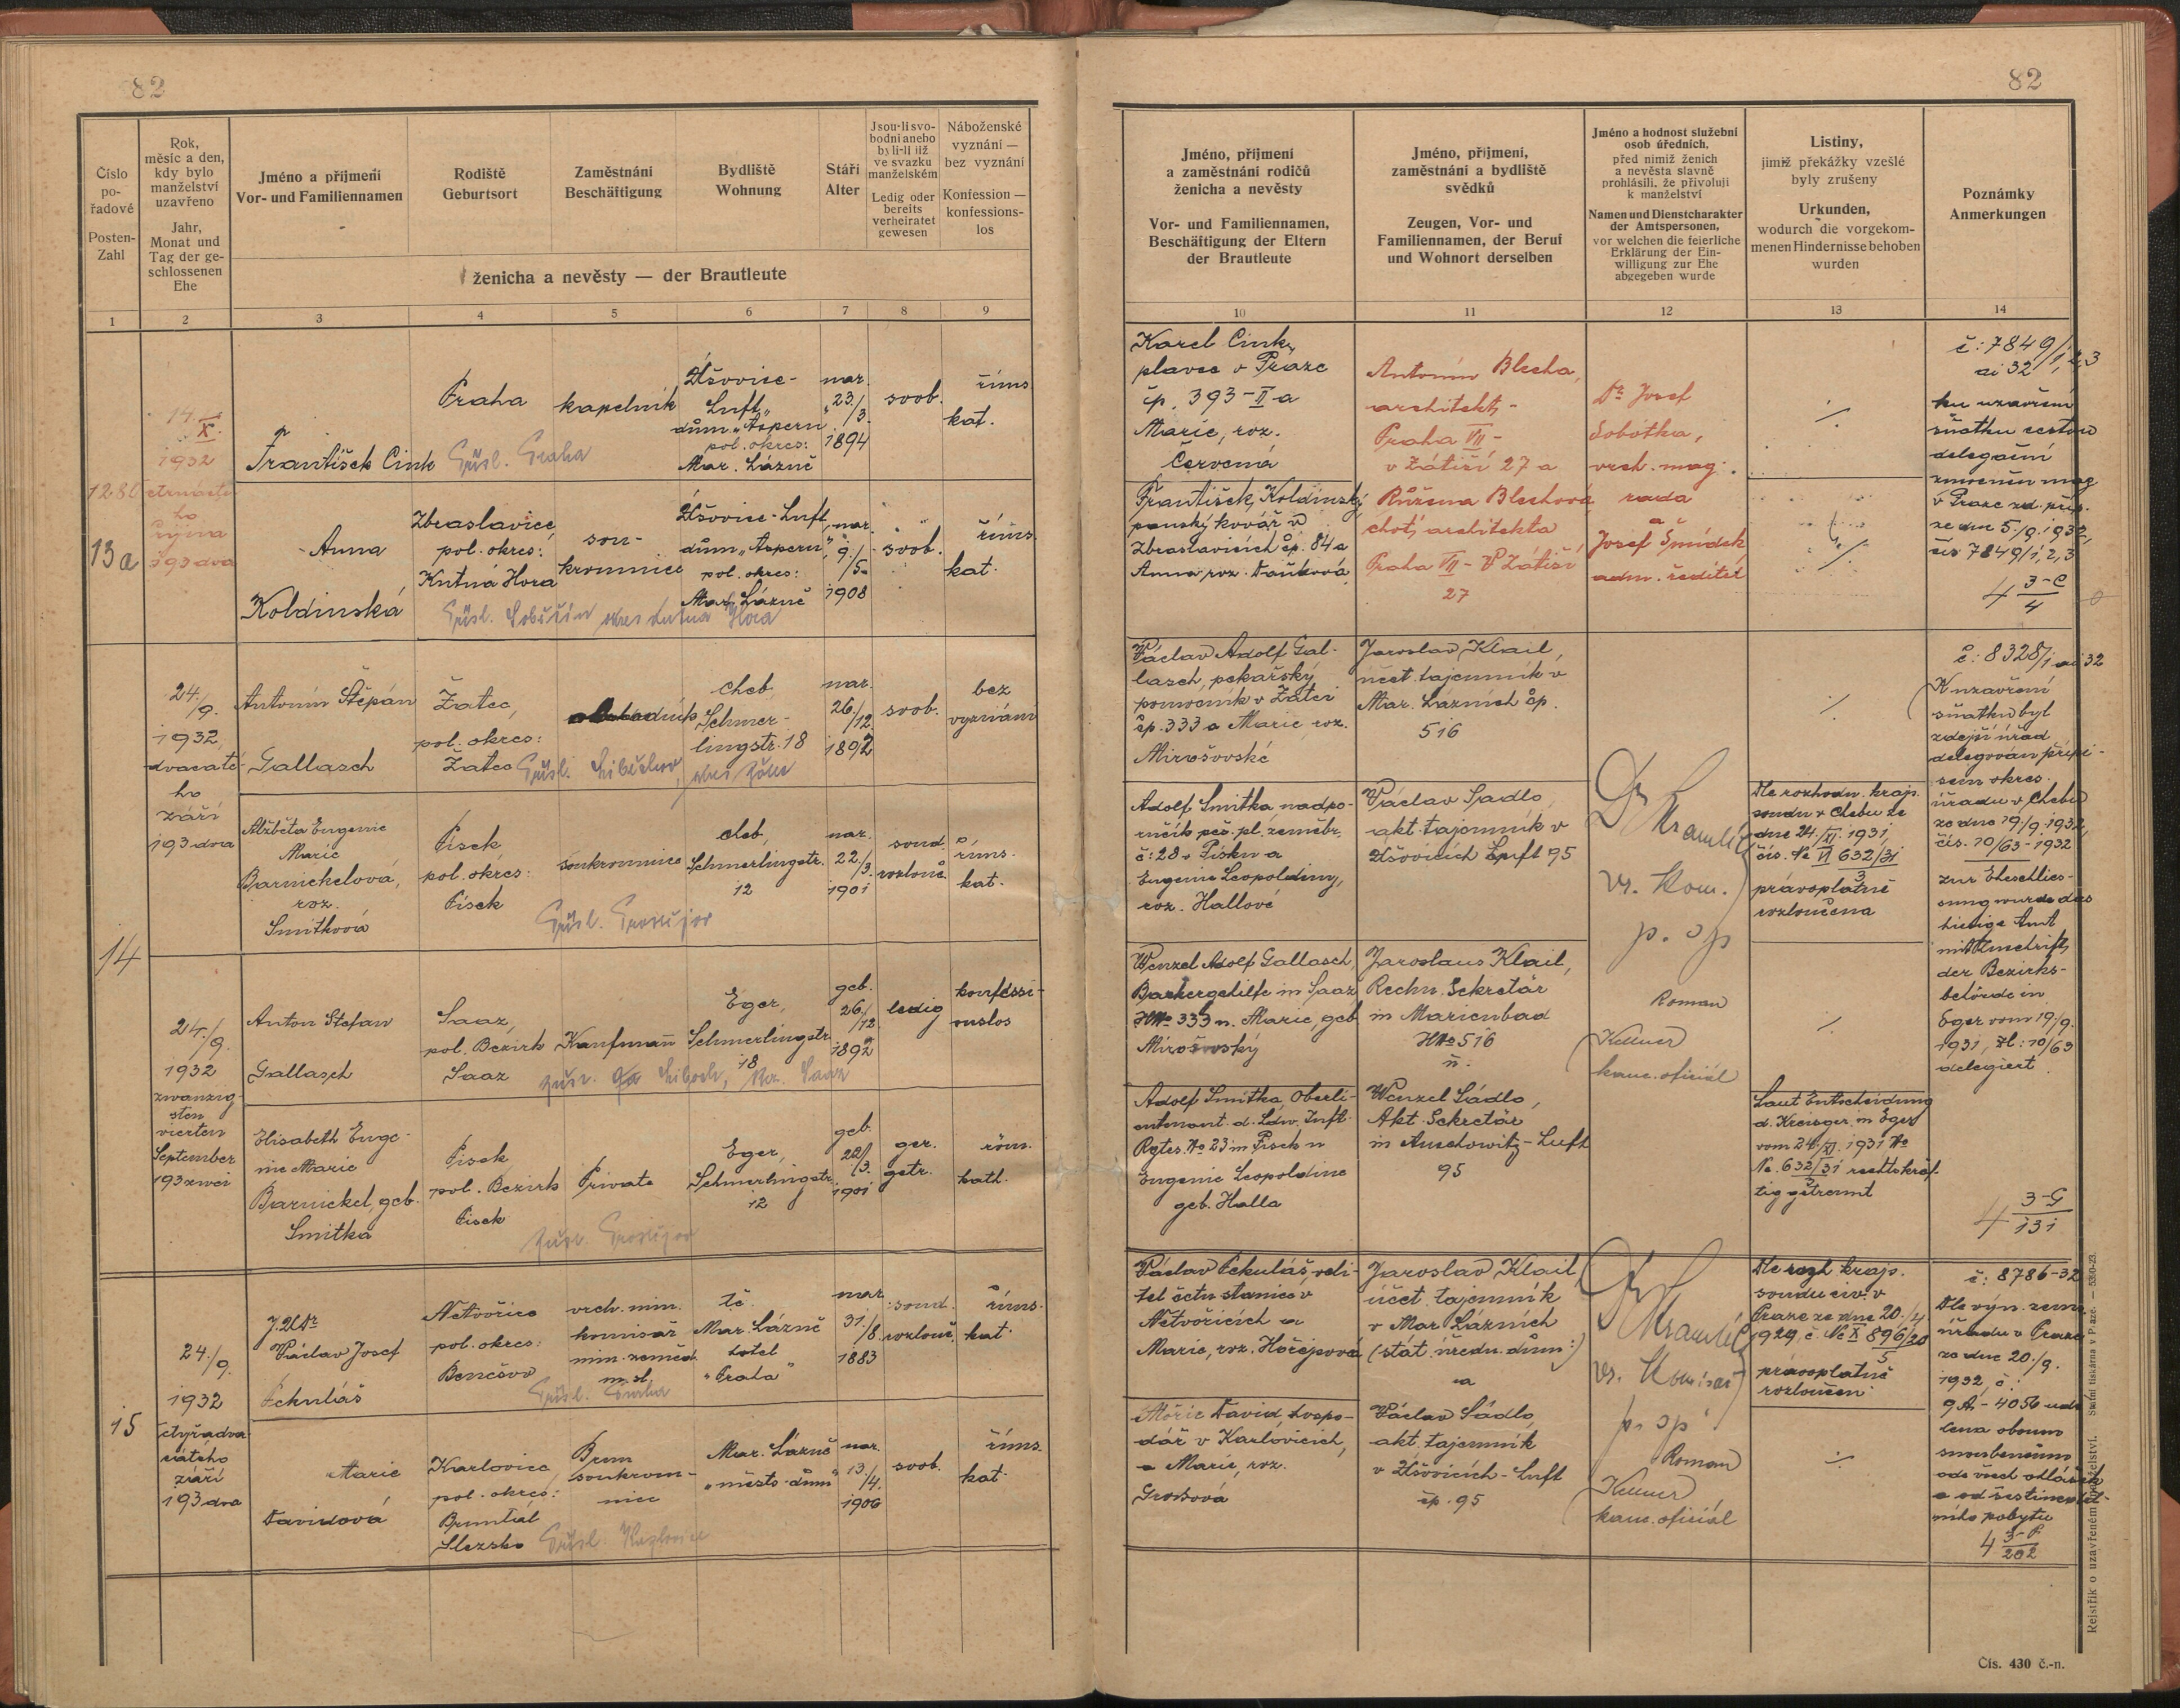 82
Číslo
po-
řadové
Posten-
Zahl
Rok,
měsíc a den,
kdy bylo
manželství
uzavřeno
Jahr,
Monat und
Tag der ge-
schlossenen
Ehe
Jméno a příjmení
Vor- und Familiennamen
Rodiště
Geburtsort
Zaměstnání
Beschäftigung
Bydliště
Wohnung
Stáří
Alter
Jsou-li svo-
bodni anebo
byli-li již
ve svazku
manželském
Ledig oder
bereits
verheiratet
gewesen
Náboženské
vyznání —
bez vyznání
Konfession —
konfessions-
los
ženicha a nevěsty — der Brautleute
1 2 3 4 5 6 7 8 9
1280
13a
14.
X.
1932
října
193dva
František Cink
Praha
kapelník
Úšovice-
Luft,
dům „Aspern
pol. okres:
Mar. Lázně
nar.
23./
3.
1894
svob.
říms.
kat.
Přísl. Praha
Anna
Koldinská
Zbraslavice,
pol. okres:
Kutná Hora
sou-
kromnice
Úšovice-Luft
dům „Aspern",
pol. okres:
Mar. Lázně
nar.
9./
5.
1908
svob.
říms.
kat.
Přísl. okres Kutná Hora
14
24./
9.
1932
dvacaté-
ho
září
193dva
Antonín Štěpán
Gallasch
Žatec,
pol. okres:
Žatec
Cheb
Schmer-
lingstr. 18
nar.
26./
12.
1892
svob.
bez
vyznání
Přísl.
Alžběta Eugenie
Marie
Barnickelová,
roz.
Smitková
Písek
pol. okres:
Písek
soukromnice
Cheb,
Schmerlingstr.
12
nar.
22./
3.
1901
soud.
rozlouč.
říms.
kat.
Přísl.
24./
9.
1932
zwanzig-
sten
vierten
September
193zwei
Anton Stefan
Gallasch
Saaz,
pol. Bezirk
Saaz
Kaufmann
Eger,
Schmerlingstr.
18
geb.
26./
12.
1892
ledig
konfessi-
onslos
Bez. Saaz
Elisabeth Euge-
nie Marie
Barnickel, geb.
Smitka
Písek
pol. Bezirk
Písek
Private
Eger,
Schmerlingstr.
12
geb.
22./
3.
1901
ger.
getr.
röm.
kath.
15
24./
9.
1932
čtyřadva-
cátého
září
193dva
JUDr
Václav Josef
Pekuláš
Netvořice
pol. okres:
Benešov
vrch. min.
komisař
min. zeměd.
tč.
Mar. Lázně
hotel
„Praha"
nar.
31./
8.
1883
soud.
rozlouč.
říms.
kat.
Přísl. Praha
Marie
Davidová
Karlovice,
pol. okres:
Bruntál
Slezsko
soukrom-
nice
Mar. Lázně
„město-dům"
nar.
13./
4.
1906
svob.
říms.
kat.
Přísl. Karlovice
82
Jméno, příjmení
a zaměstnání rodičů
ženicha a nevěsty
Vor- und Familiennamen,
Beschäftigung der Eltern
der Brautleute
Jméno, příjmení,
zaměstnání a bydliště
svědků
Zeugen, Vor- und
Familiennamen, der Beruf
und Wohnort derselben
Jméno a hodnost služební
osob úředních,
před nimiž ženich
a nevěsta slavně
prohlásili, že přivolují
k manželství
Namen und Dienstcharakter
der Amtspersonen,
vor welchen die feierliche
Erklärung der Ein-
willigung zur Ehe
abgegeben wurde
Listiny,
jimiž překážky vzešlé
byly zrušeny
Urkunden,
wodurch die vorgekom-
menen Hindernisse behoben
wurden
Poznámky
Anmerkungen
10 11 12 13 14
Karel Cink,
plavec v Praze
čp. 393-II a
Marie, roz.
Červená
František Koldinský,
panský kovář v
Zbraslavicích čp. 84 a
Anna roz. Daňková
Antonín Blecha,
architekt,-
Praha VII-
v Zátiší 27 a
Růžena Blechová
choť architekta
Praha VII- V Zátiší
27
Dr. Josef
Sobotka,
vrch. mag.
rada
a
Josef Šmídek
adm. ředitel
č: 7849/1,2,3
ai 32
ku uzavření
sňatku cestou
delegační
zmocněn mag
v Praze
ze dne 5/9. 1932,
čís 7849/1,2,3
4 3-C
4
Václav Adolf Gal-
lasch, pekařský
pomocník v Žatci
čp. 333 a Marie roz.
Mirošovské
Jaroslav Klail,
účet. tajemník v
Mar. Lázních čp.
516
Adolf Smitka, nadpo-
ručík pěš. pl. zeměbr.
č: 28 v Písku a
Eugenie Leopoldiny,
roz. Hallové
Václav Sádlo,
akt. tajemník v
Úšovicích Luft 95
Dle rozhodn. kraj.
soudu v Chebu ze
dne 24./XI. 1931,
čís. Nc VI 632/31
3
právoplatně
rozloučena
č: 8328/1 ai 32
K uzavření
sňatku byl
zdejší úřad
delegován přípi-
sem okres.
úřadu v Chebu
ze dne 19./9. 1932,
čís. 10/63-1932
Wenzel Adolf Gallasch,
Bäckergehilfe in Saaz
HNo 333 u. Marie, geb.
Mirošovský
Jaroslaus Klail,
Rechn. Sekretär
in Marienbad
HNo 516
u.
vr. Kom.
p. op
Roman
Kellner
kanc. oficiál
zur Eheschlies-
sung wurde das
hiesige Amt
mit Zuschrift
der Bezirks-
behörde in
Eger vom 19./9.
1931, Zl: 10/63
delegiert.
Adolf Smitka, Oberli-
eutenant d. Ldw. Inft.
Rgtes. No 23 in Písek u
Eugenie Leopoldine
geb. Halla
Wenzel Sádlo,
Akt. Sekretär
in Auschowitz-Luft
95
Laut Entscheidung
d. Kreisger. in Eger
vom 24./XI. 1931 No
Nc. 632/31 rechtskräf-
3
tig getrennt
4 3-G
131
Václav Pekuláš, veli-
tel četn. stanice v
Netvořicích a
Marie, roz. Hořejšová
Jaroslav Klail,
účet. tajemník
v Mar. Lázních
(stát. úředn. dům:)
a
vr. Komisař
p. op
Roman
Kellner
kanc. oficiál
Dle rozh kraj.
soudu civ. v
Praze ze dne 20./4
1929, č. Nc X 896/20
5
právoplatně
rozloučen
č: 8786-32
Dle výn. zem.
úřadu v Praze
ze dne 20./9.
1932, č.
9A- 4056 udě-
lena oboum
snoubencům
ode všech ohlášek
a od šestineděl-
ního pobytu
4 3-P
202
Mořic David, hospo-
dář v Karlovicích,
a Marie, roz.
Grossová
Václav Sádlo,
akt. tajemník
v Úšovicích-Luft
čp. 95
Rejstřík o uzavřeném manželství. Státní tiskárna v Praze. — 5360-23.
Čís. 430 č.-n.